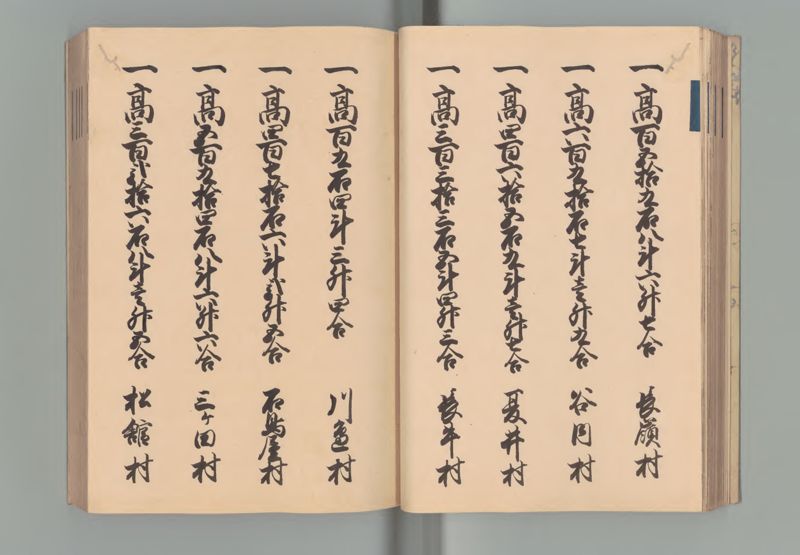 一高百五拾九石八斗六升七合 長嶺村
一高六百九拾石七斗壱升九合 谷内村
一高四百六拾五石九斗壱升七合 夏井村
一高三百三拾三石五斗四升三合 長牛村
一高百九石四斗三升四合 川邉村
一高四百七拾石六斗弐升五合 石鳥屋村
一高五百九拾四石八斗六升六合 三ヶ田村
一高三百弐拾六石八斗壱升五合 松舘村